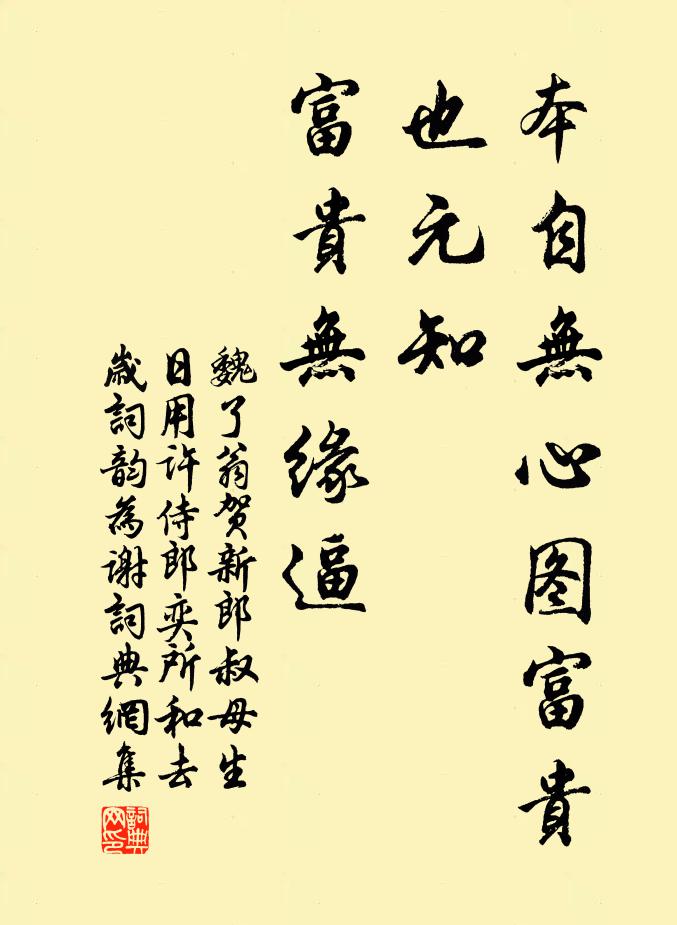 本自無心图富貴
也元知
富貴無缘逼
魏了翁贺新郎叔母生
日用许侍郎奕所和去
歲詞韵為谢詞典網集
詞典網印